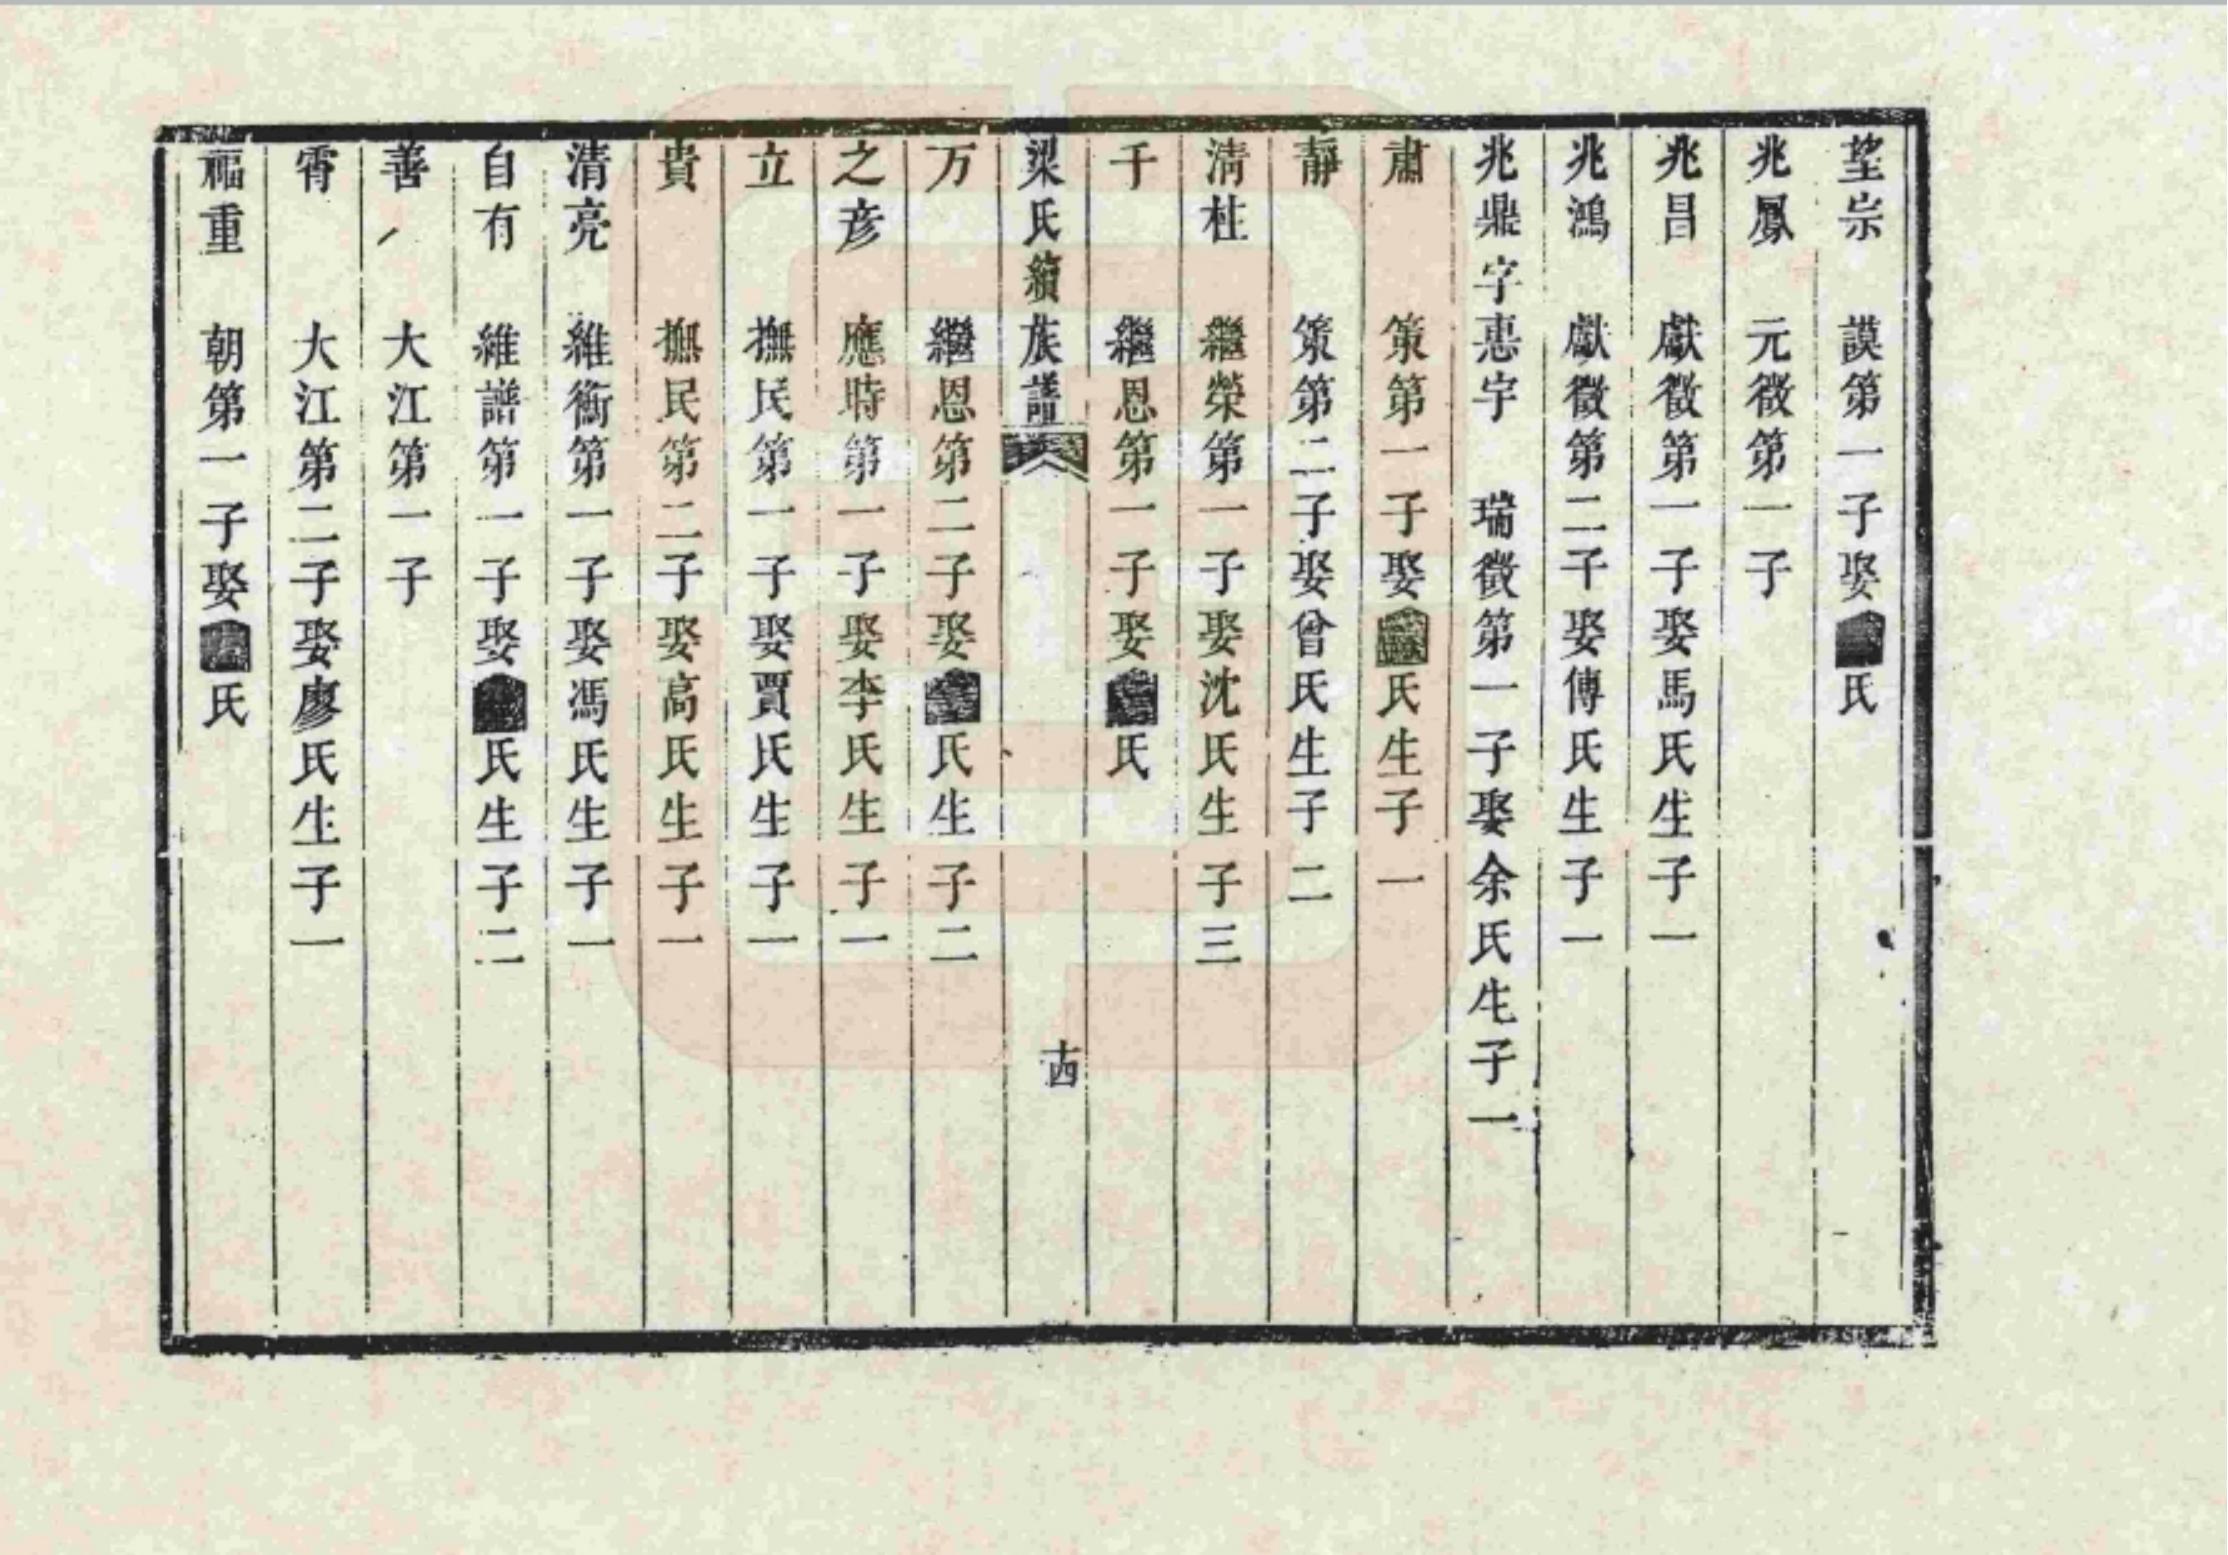 望宗 謨第一子娶氏
兆鳳 元徵第一子
兆昌 獻徵第一子娶馬氏生子一
兆鴻 獻徵第二子娶傅氏生子一
兆鼎字惪宇 瑞徵第一子娶余氏生子一
肅 策第一子娶氏生子一
靜 策第二子娶曾氏生子二
清柱 繼榮第一子娶沈氏生子三
千 繼恩第一子娶氏
梁氏續族譜 十四
万 繼恩第二子娶氏生子二
之彥 應時第一子娶李氏生子一
立 撫民第一子娶賈氏生子一
貴 撫民第二子娶高氏生子一
清亮 維衡第一子娶馮氏生子一
自有 維譜第一子娶氏生子二
善 大江第一子
霄 大江第二子娶廖氏生子一
福重 朝第一子娶氏